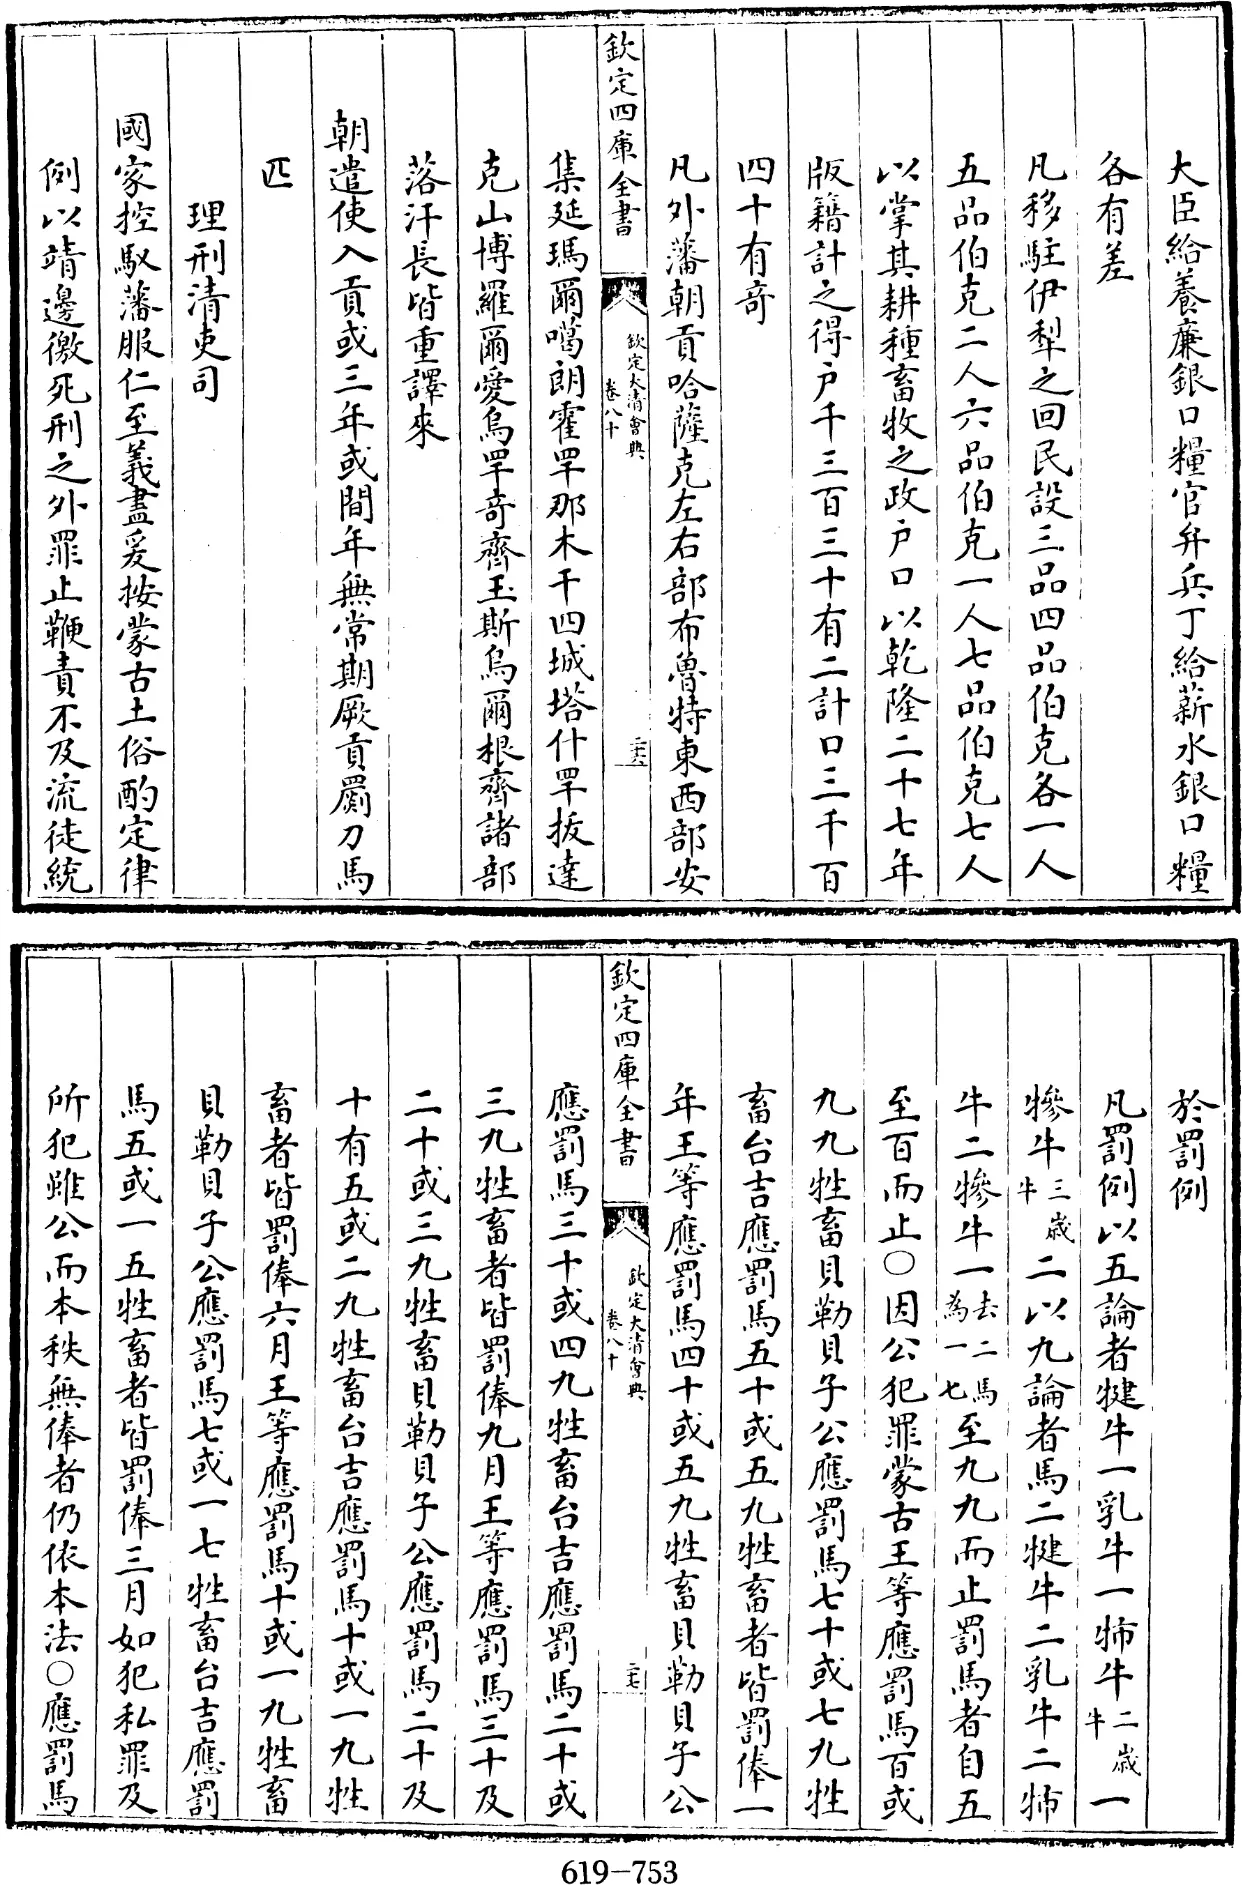 大臣給養廉銀口糧官弁兵丁給薪水銀口糧
各有差
凡移駐伊犁之回民設三品四品伯克各一人
五品伯克二人六品伯克一人七品伯克七人
以掌其耕種畜牧之政戶口以乾隆二十七年
版籍計之得戶千三百三十有二計口三千百
四十有奇
凡外藩朝貢哈薩克左右部布魯特東西部安
欽定四庫全書
欽定大清會典
卷八十
三六
集延瑪爾噶朗霍罕那木干四城塔什罕拔達
克山博羅爾愛烏罕奇齊玉斯烏爾根齊諸部
落汗長皆重譯來
朝遣使入貢或三年或間年無常期厥貢罽刀馬
匹
理刑清吏司
國家控馭藩服仁至義盡爰按蒙古土俗酌定律
例以靖邊徼死刑之外罪止鞭責不及流徒統
於罰例
凡罰例以五論者犍牛一乳牛一㸬牛二歲牛一
犙牛三歲牛二以九論者馬二犍牛二乳牛二㸬
牛二犙牛一去二馬為一七至九九而止罰馬者自五
至百而止○因公犯罪蒙古王等應罰馬百或
九九牲畜貝勒貝子公應罰馬七十或七九牲
畜台吉應罰馬五十或五九牲畜者皆罰俸一
年王等應罰馬四十或五九牲畜貝勒貝子公
欽定四庫全書
欽定大清會典
卷八十
三七
應罰馬三十或四九牲畜台吉應罰馬二十或
三九牲畜者皆罰俸九月王等應罰馬三十及
二十或三九牲畜貝勒貝子公應罰馬二十及
十有五或二九牲畜台吉應罰馬十或一九牲
畜者皆罰俸六月王等應罰馬十或一九牲畜
貝勒貝子公應罰馬七或一七牲畜台吉應罰
馬五或一五牲畜者皆罰俸三月如犯私罪及
所犯雖公而本秩無俸者仍依本法○應罰馬
619-753